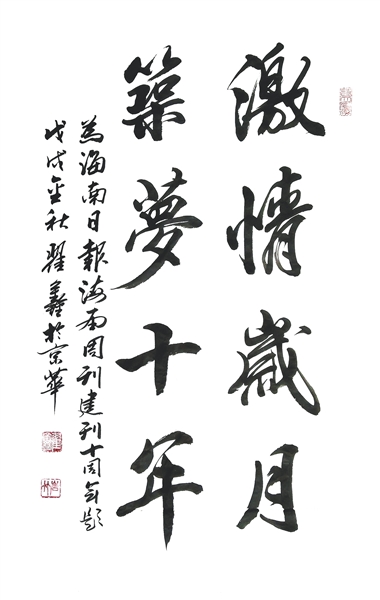 激情歲月
築夢十年
為海南日報海南周刊建刊十周年題
戊戌金秋翟羲於京華